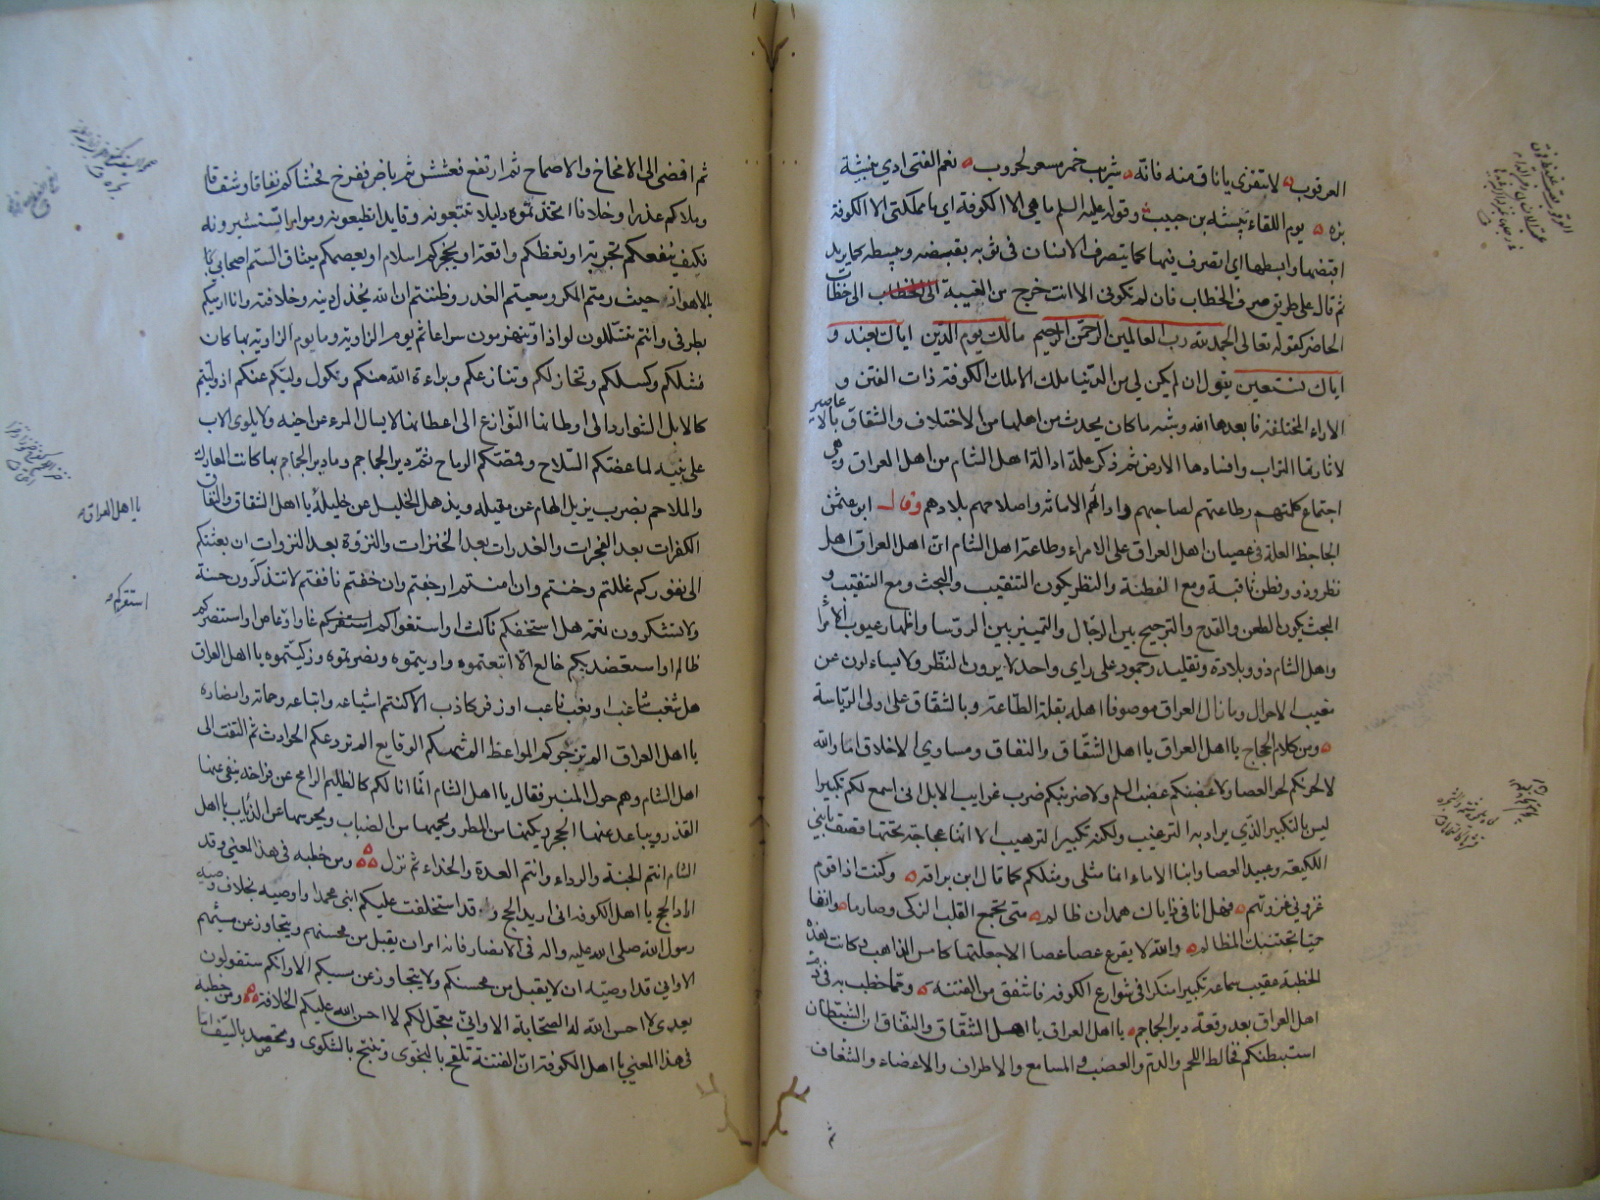 العرقوب لا تبقرى يا ناق منه فانه شريب خمر مسعر لحروب نعم الفتى ادى نبيشة
بزه يوم اللقاء نبيشه بن حبيب وقوله عليه السلم ما هي الا الكوفة اي ما مملكتي الا الكوفة
اقبضها وابسطها اي اتصرف فيها كما يتصرف الانسان في ثوبه بقبضه وبسطه كما يريد
ثم قال على طريق صرف الخطاب فان لم تكوني الا انت خرج من الغيبة الى خطاب
الحاضر كقوله تعالى الحمد لله رب العالمين الرحمن الرحيم مالك يوم الدين اياك نعبد و
اياك نستعين يقول ان لم يكن لي من الدنيا ملك الا ملك الكوفة ذات الفتن و
الاراء المختلفة فابعدها الله وشبه ما كان يحدث من اهلها من الاختلاف والشقاق بالاعاصير
لاثارتها التراب وافسادها الارض ثم ذكر علة ادالة اهل الشام من اهل العراق وهي
اجتماع كلمتهم وطاعتهم لصاحبهم واداؤهم الامانة واصلاحهم بلادهم وقال ابو عثمن
الجاحظ العلة في عصيان اهل العراق على الامراء وطاعة اهل الشام ان اهل العراق اهل
نظر وذوو فطن ثاقبة ومع الفطنة والنظر يكون التنقيب والبحث ومع التنقيب و
البحث يكون الطعن والقدح والترجيح بين الرجال والتمييز بين الروسا واظهار عيوب الامرا
واهل الشام ذوو بلادة وتقليد وجمود على راي واحد لا يرون النظر ولا يسألون عن
مغيب الاحوال وما زال العراق موصوفا اهله بقلة الطاعة وبالشقاق على اولى الرياسة
ومن كلام الحجاج يا اهل العراق يا اهل الشقاق والنفاق ومساوي الاخلاق اما والله
لالحونكم لحو العصا ولاعصبنكم عصب السلم ولاضربنكم ضرب غرايب الابل انى اسمع لكم تكبيرا
ليس بالتكبير الذي يراد به الترغيب ولكنه تكبير الترهيب الا انها عجاجة تحتها قصف يا بني
اللكيعة وعبيد العصا وابنا الاماء انما مثلي ومثلكم كما قال ابن براقة وكنت اذا قوم
غزوني غزوتهم فهل انا في ذا يال همدان ظالم متى تجمع القلب الذكى وصارما وانفا
حميا تجتنبك المظالم والله لا يقرع عصا عصا الا جعلتها كامس الذاهب وكانت هذه
الخطبة عقيب سماعه تكبيرا منكرا في شوارع الكوفه فاشفق من الفتنه ومما خطب به في ذم
اهل العراق بعد وقعة دير الجماجم يا اهل العراق يا اهل الشقاق والنفاق ان الشيطان
استبطنكم فخالط اللحم والدم والعصب و المسامع والاطراف والاعضاء والشغاف
ثم افضى الى الامخاخ والاصماخ ثم ارتفع فعشش ثم باض ففرخ فحشاكم نفاقا وشقاقا
وملاكم غدرا وخلافا اتخذتموه دليلا تتبعونه وقايدا تطيعونه وموامرا تستشيرونه
فكيف تنفعكم تجربة او تعظكم واقعة او يحجزكم اسلام او يعصمكم ميثاق الستم اصحابي
بالاهواز حيث رمتم المكر وسعيتم الغدر وظننتم ان الله يخذل دينه وخلافته وانا ارميكم
بطرفي وانتم تتسللون لواذا وتنهزمون سراعا ثم يوم الزاوية وما يوم الزاوية بها كان
فشلكم وكسلكم وتخاذلكم وتنازعكم وبراءة الله منكم ونكول وليكم عنكم اذ وليتم
كالابل الشوارد الى اوطانها النوازع الى اعطانها لا يسال المرء عن اخيه ولا يلوى الاب
على بنيه لما عضكم السلاح وقصتكم الرماح ثم دير الجماجم وما دير الجماجم بها كانت المعارك
والملاحم بضرب يزيل الهام عن مقيله ويذهل الخليل عن خليله يا اهل الشقاق والنفاق
الكفرات بعد الفجرات والغدرات بعد الخترات والنزوة بعد النزوات ان بعثتكم
الى ثغوركم غللتم وخنتم وان امنتم ارجفتم وان خفتم نافقتم لا تتذكرون حسنة
ولا تشكرون نعمة هل استخفكم ناكث او استغواكم استفزكم غاو او عاص او استنصركم
ظالم او استعضدكم خالع الا اتبعتموه واويتموه ونصرتموه وزكيتموه يا اهل العراق
هل شغب شاغب او نعب ناعب او زفر كاذب الا كنتم اشياعه واتباعه وحماته وانصاره
يا اهل العراق الم تزجركم المواعظ الم تنبهكم الوقايع الم تردعكم الحوادث ثم التفت الى
اهل الشام وهم حول المنبر فقال يا اهل الشام انما انا لكم كالظليم الرامح عن فراخه ينفي عنها
القذر ويباعد عنها الحجر ويكنها من المطر ويحميها من الضباب ويحرسها عن الذئاب يا اهل
الشام انتم الجنة والرداء وانتم العدة والحذاء ثم نزل ومن خطبه في هذا المعني وقد
اراد الحج يا اهل الكوفه اني اريد الحج وقد استخلفت عليكم ابنى محمدا واوصيته بخلاف وصية
رسول الله صلى الله عليه واله في الانصار فانه امر ان يقبل من محسنهم ويتجاوز عن مسيئهم
الا واني قد اوصيته ان لا يقبل من محسنكم ولا يتجاوز عن مسيكم الا وانكم ستقولون
بعدى لا احسن الله له الصحابة الا واني معجل لكم لا احسن الله عليكم الخلافة ومن خطبه
في هذا المعنى يا اهل الكوفة ان الفتنة تلقح بالنجوى وتنتج بالشكوى وتحصد بالسيف اما
يا اهل العراق
استفزكم